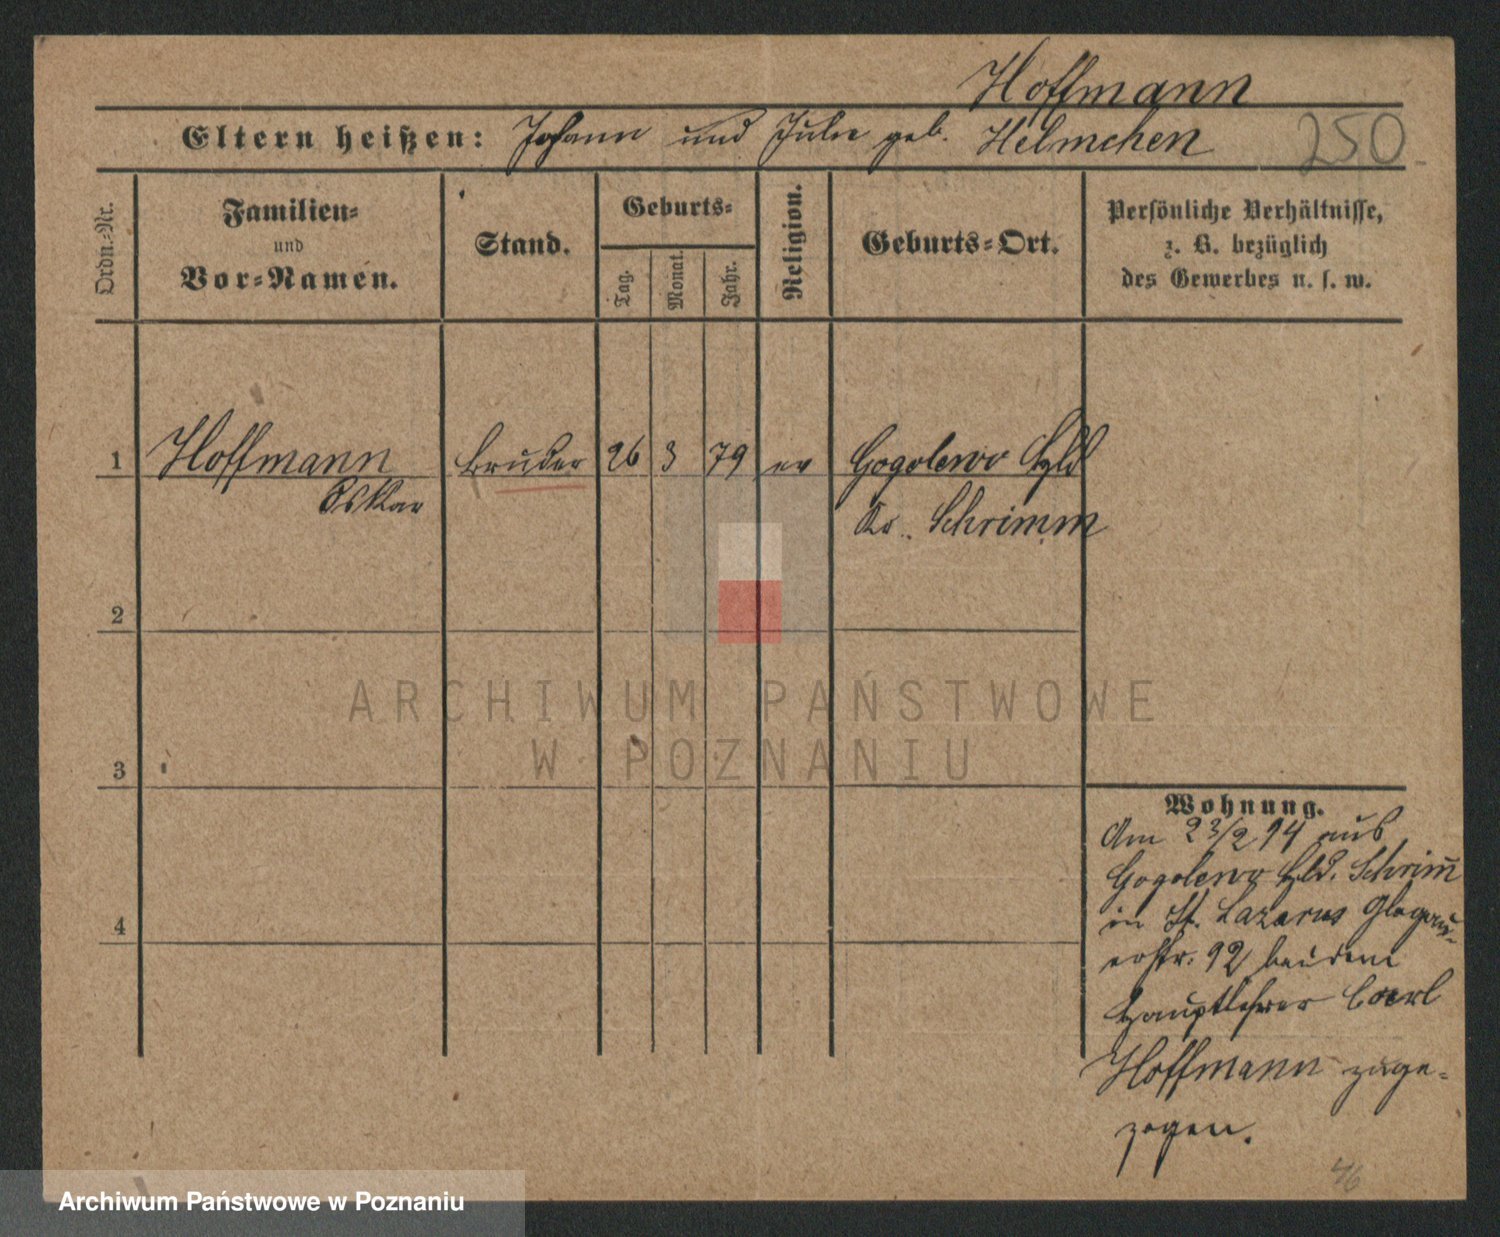 Hoffmann
Eltern heißen: Johann und Julie geb. Helmchen 250
Ordn.=Nr.
Familien=
und
Vor=Namen.
Stand.
Geburts=
Tag.
Monat.
Jahr.
Religion.
Geburts=Ort.
Persönliche Verhältnisse,
z. B. bezüglich
des Gewerbes u. s. w.
1 Hoffmann Bruder 26 3 79 ev Gogolewo Hld
Oskar Kr. Schrimm
2
3
4
ARCHIWUM PAŃSTWOWE
W POZNANIU
Wohnung.
Am 23/2 94 aus
Gogolewo Hld. Schrim̅
in St. Lazarus Glogau=
erstr. 92 bei dem
Hauptlehrer Carl
Hoffmann zuge=
zogen.
46
Archiwum Państwowe w Poznaniu